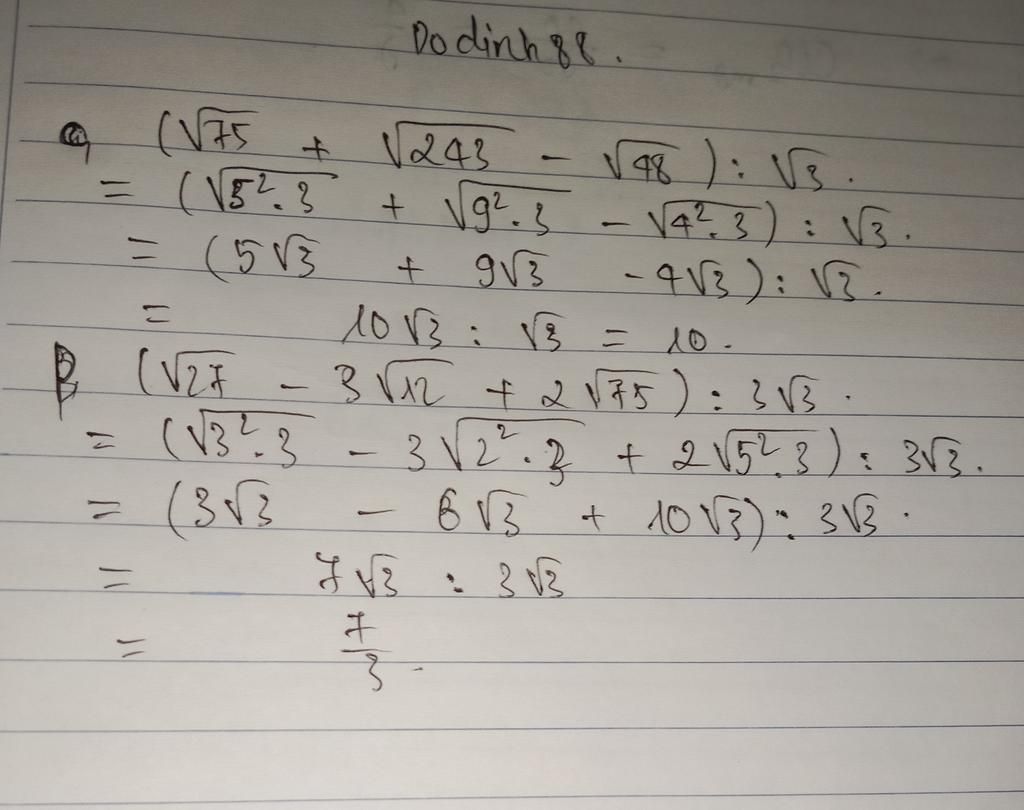 Dodinh88.
a, (√75 + √243 - √48) : √3.
= (√5².3 + √9².3 - √4².3) : √3.
= (5√3 + 9√3 - 4√3) : √3.
= 10√3 : √3 = 10.
β (√27 - 3√12 + 2√75) : 3√3.
= (√3².3 - 3√2².3 + 2√5².3) : 3√3.
= (3√3 - 6√3 + 10√3) : 3√3.
= 7√3 : 3√3
= 7/3.